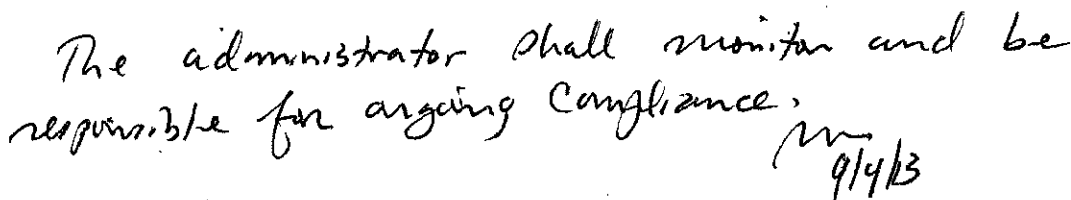 The administrator shall monitor and be
responsible for ongoing compliance.
9/4/13